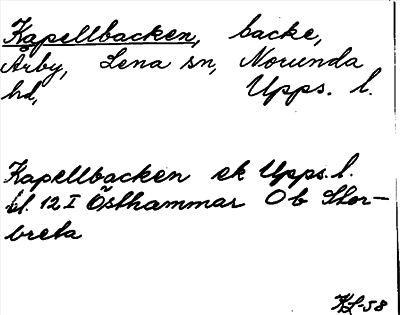 Kapellbacken, backe,
Årby, Lena sn, Norunda
hd, Upps. l.
Kapellbacken ek Upps. l.
bl. 12 I Östhammar Ob Stor-
breta
KL-58